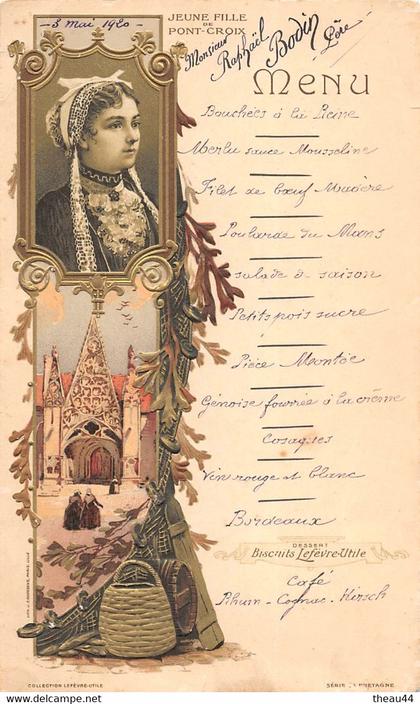 3 mai 1920
JEUNE FILLE
DE
PONT-CROIX
Monsieur
Raphaël
Bodin
Père
MENU
Bouchées à la Reine
Merlu sauce Mousseline
Filet de bœuf Madère
Poularde du Mans
salade de saison
Petits pois sucre
Pièce Montée
Génoise fourrée à la crème
Cosaques
Vin rouge et blanc
Bordeaux
DESSERT
BISCUITS LEFÈVRE-UTILE
Café
Rhum - Cognac - Kirsch
COLLECTION LEFÈVRE-UTILE
SÉRIE BRETAGNE
© theau44